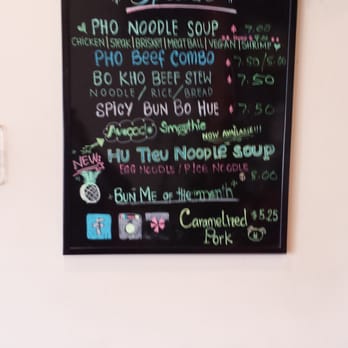 PHO NOODLE SOUP 7.00
CHICKEN | STEAK | BRISKET | MEATBALL | VEGAN | SHRIMP
PHO BEEF COMBO 7.50/8.00
BO KHO BEEF STEW 7.50
NOODLE / RICE / BREAD
SPICY BUN BO HUE 7.50
Avocado Smoothie
NOW AVAILABLE!!!
NEW! HU TIEU NOODLE SOUP
EGG NOODLE / RICE NOODLE
$ 8.00
"BUN ME of the month"
Caramelized $5.25
Pork